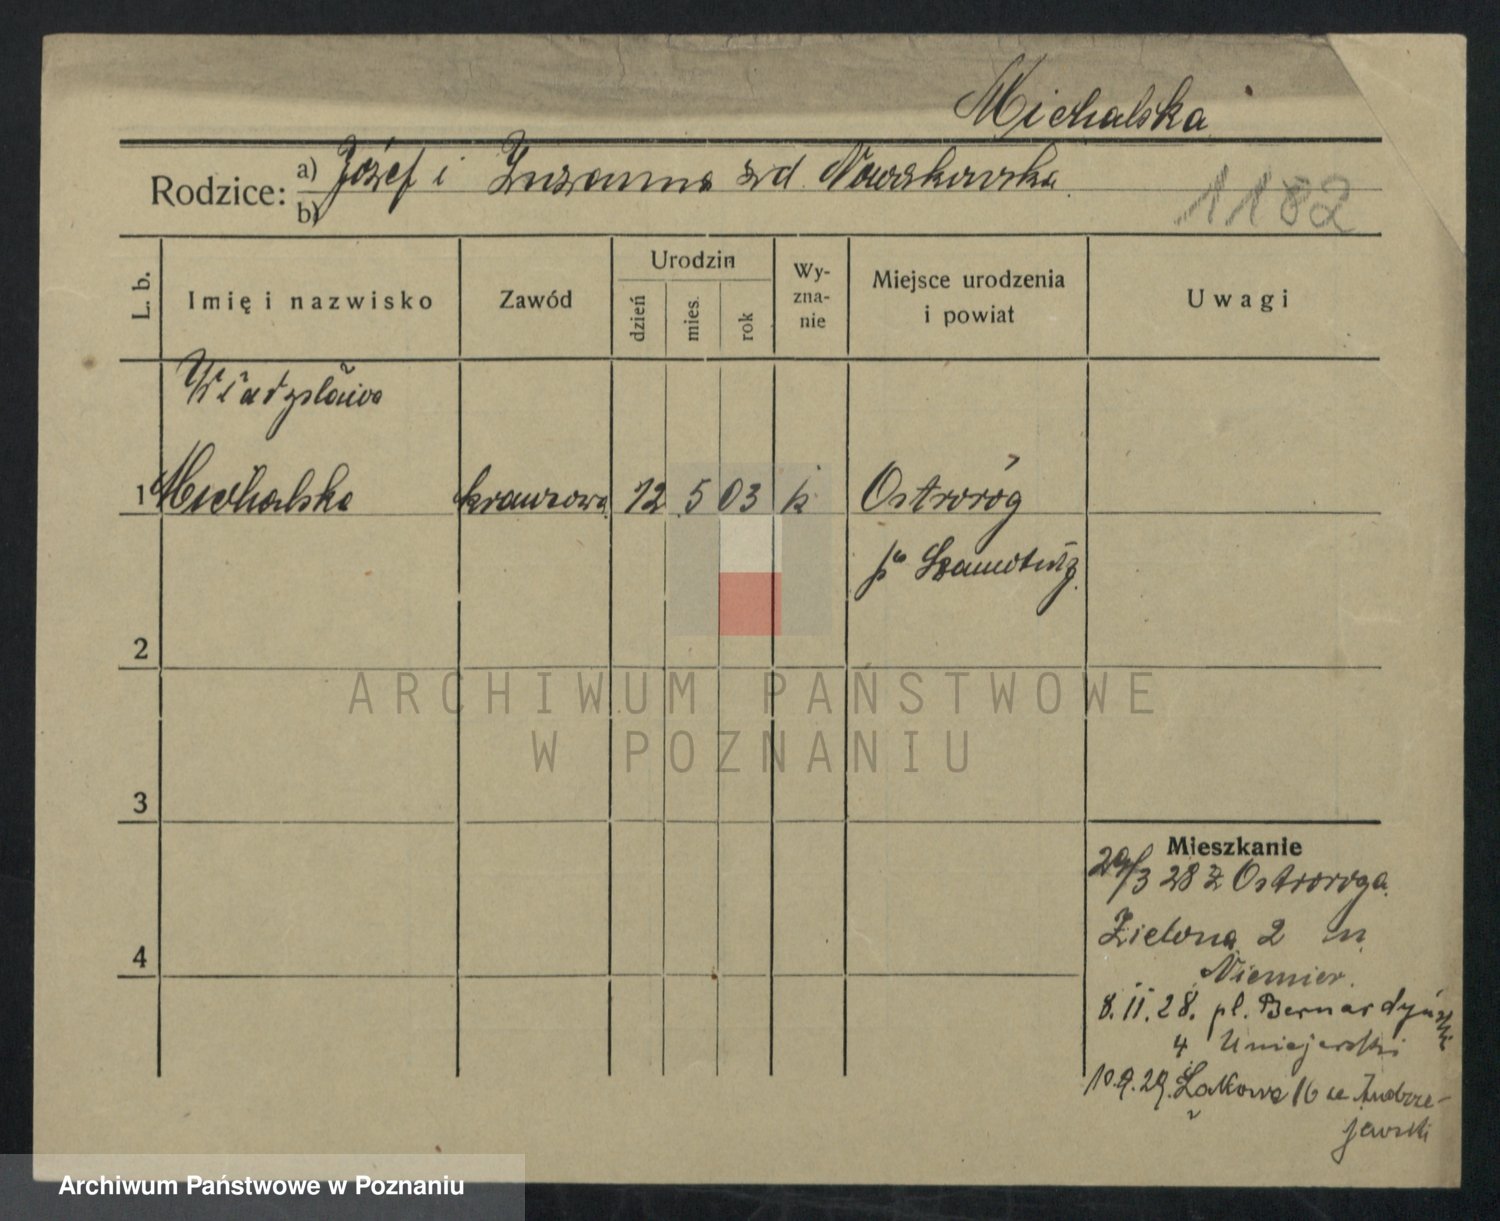 Michalska
Rodzice: a) Józef i Zuzanna zd. Nowakowska
b)
1182
L. b.
Imię i nazwisko
Zawód
Urodzin
dzień
mies.
rok
Wy-
zna-
nie
Miejsce urodzenia
i powiat
Uwagi
Władysława
1 Michalska krawcowa 12 5 03 k Ostroróg
p. Szamotuły
2
ARCHIWUM PAŃSTWOWE
W POZNANIU
3
Mieszkanie
29/3 28 z Ostroroga
Zielona 2
Niemier.
4
8.II.28. pl. Bernardyński
4 Uniejewski
10.9.29. Łąkowa 16 u Andrze-
jewski
Archiwum Państwowe w Poznaniu